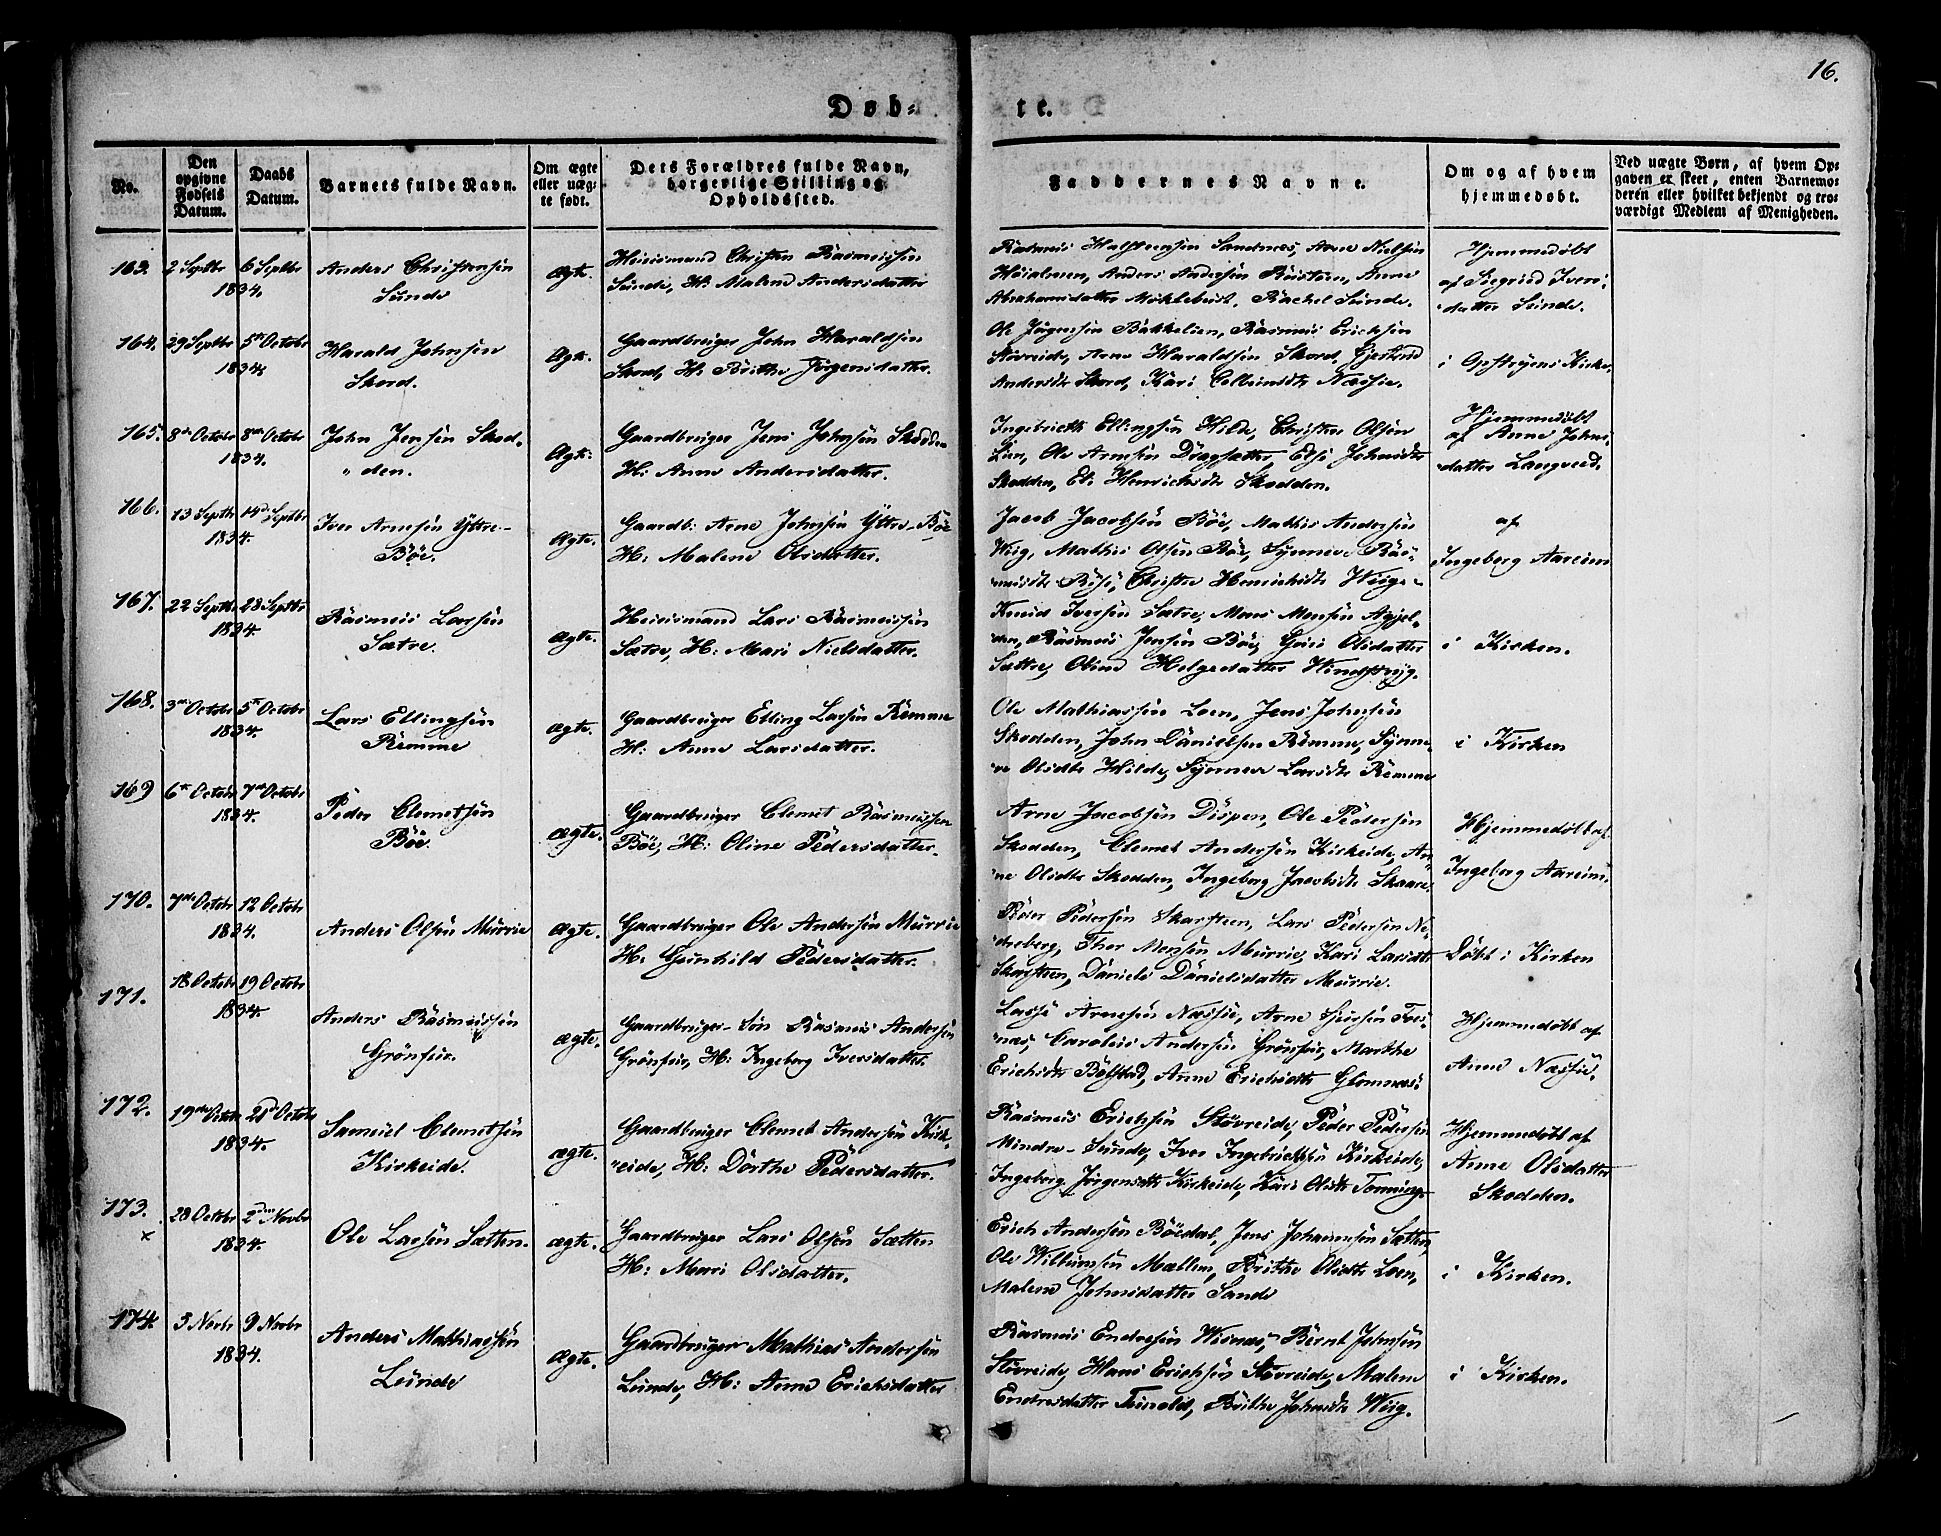 16.
Døb-
te.
No.
Den
opgivne
Fødsels
Datum.
Daabs
Datum.
Barnets fulde Navn.
Om ægte
eller uæg-
te født.
Dets Forældres fulde Navn,
borgerlige Stilling og
Opholdssted.
Faddernes Navne.
Om og af hvem
hjemmedøbt.
Ved uægte Børn, af hvem Op-
gaven er skeet, enten Barnemo-
deren eller hvilket bekjendt og tro-
værdigt Medlem af Menigheden.
163.
2 Septbr 6 Septbr
1834.
Anders Christensen
Sunde
ægte.
Huusmand Christen Rasmussen
Sunde, H: Malene Andersdatter
Rasmus Halsteensen Sandnes, Arne Nielsen
Anders Andersen Anne
Abrahamsdatter Myklebust, Rachel Sunde.
Hjemmedøbt
af Siegrid Ivers-
datter Sunde.
164.
29 Septbr 5te Octobr
1834
Harald Johnsen
Skord.
Ægte.
Gaardbruger John Haraldsen
Skord, H: Brithe Jörgensdatter.
Ole Jörgensen Bakkelien, Rasmus Erichsen
Störreide, Arne Haraldsen Skord, Gjertrud
Andersdtr Skord, Kari Næssie.
i Opstryens Kirke.
165.
8de Octobr 8de Octobr
1834.
John Jensen Skod-
"den.
Ægte:
Gaardbruger Jens Johnsen Skodden
H: Anne Andersdatter.
Ingebricth Ellingsen Hilde, Christen Olsen
Lien, Ole Arnesen Dragsætter, Else Johnsdtr
Skodden, Henrichsdtr Skodden.
Hjemmedøbt
af Anne Johns-
datter Langved.
166.
13 Septbr 14d Septbr
1834.
Iver Arnesen Yttre-
Böe.
Ægte.
Gaardb: Arne Johnsen Yttre-Böe
H: Malene Olsdatter.
Jacob Jacobsen Böe, Mathis Andersen
Wiig, Mathis Olsen Böe, Synneve Ras-
"musdtr Böe, Christie Henrichsdtr Wiig.
af
Ingeberg Aareim
167.
22 Septbr 28 Septbr
1834.
Rasmus Larsen
Sætre.
Ægte.
Huusmand Lars Rasmussen
Sætre, H: Mari Nielsdatter.
Knud Iversen Sætre, Mons Monsen Agjel-
"den, Rasmus Jensen Böe, Guri Olsdatter
Sættre, Oline Helgedatter Windsryg.
i Kirken.
168.
3die Octobr 5te Octobr
1834.
Lars Ellingsen
Remme
Ægte.
Gaardbruger Elling Larsen Remme
H: Anne Larsdatter.
Ole Mathiassen Loen, Jens Johnsen
Skodden, John Danielsen Remme, Synne-
"ve Olsdtr Hilde, Synneve Larsdtr Remme
i Kirken
169
6te Octobr 7de Octobr
1834.
Peder Clemetsen
Böe.
Ægte.
Gaardbruger Clemet Rasmussen
Böe, H: Oline Pedersdatter.
Arne Jacobsen Dispen, Ole Pedersen
Skodden, Clemet Andersen Kirkeide, An-
"ne Olsdtr Skodden, Ingeborg Jacobsdtr Skaare.
Hjemmedøbt af
Ingeberg Aareim.
170.
7de Octobr 12 Octobr
1834.
Anders Olsen Murrie
Ægte.
Gaardbruger Ole Andersen Murrie
H: Gunhild Pedersdatter.
Peder Pedersen Skarsteen, Lars Pedersen Ne-
"dreberg, Thor Monsen Murrie, Kari Larsdtr
Skarsteen, Daniels Danielsdatter Murrie.
Døbt i Kirken
171.
18 Octobr 19 Octobr
1834.
Anders Rasmussen
Grönfur.
ægte.
Gaardbruger-Sön Rasmus Andersen
Grönfur, H: Ingeborg Iversdatter.
Lasse Arnesen Næssie, Arne
"næs, Carolus Andersen Grönfur, Marthe
Erichsdtr Bolstad, Anne Erichsdtr Glomnæs.
Hjemmedøbt af
Anne Næssie.
172.
19de Octobr 21de Octobr
1834.
Samuel Clemetsen
Kirkeide.
Ægte.
Gaardbruger Clemet Andersen Kirk-
"eide, H: Dorthe Pedersdatter.
Rasmus Erichsen Störreide, Peder Pedersen
Mindre-Sunde, Iver Ingebricktsen Kirkeide,
Ingeborg Jörgensdtr Kirkeide, Kari Olsdtr Tonning.
Hjemmedøbt af
Anne Olsdatter
Skodden.
173.
x
28 Octobr 2den Novbr
1834.
Ole Larsen Sætten.
ægte.
Gaardbruger Lars Olsen Sætten
H: Mari Olsdatter.
Erich Andersen Böedal, Jens Johannsen Sætten,
Ole Willumsen Mællem, Brithe Olsdtr Loen,
Malene Johnsdatter Sande
i Kirken.
174
3 Novbr 9 Novbr
1834.
Anders Mathiassen
Lunde
Ægte.
Gaardbruger Mathias Andersen
Lunde, H: Anne Erichsdatter
Rasmus Endresen Wisnæs, Bernt Johnsen
Störreide, Hans Erichsen Störreide, Malene
Endresdatter Brithe Johnsdtr Wiig.
i Kirken.